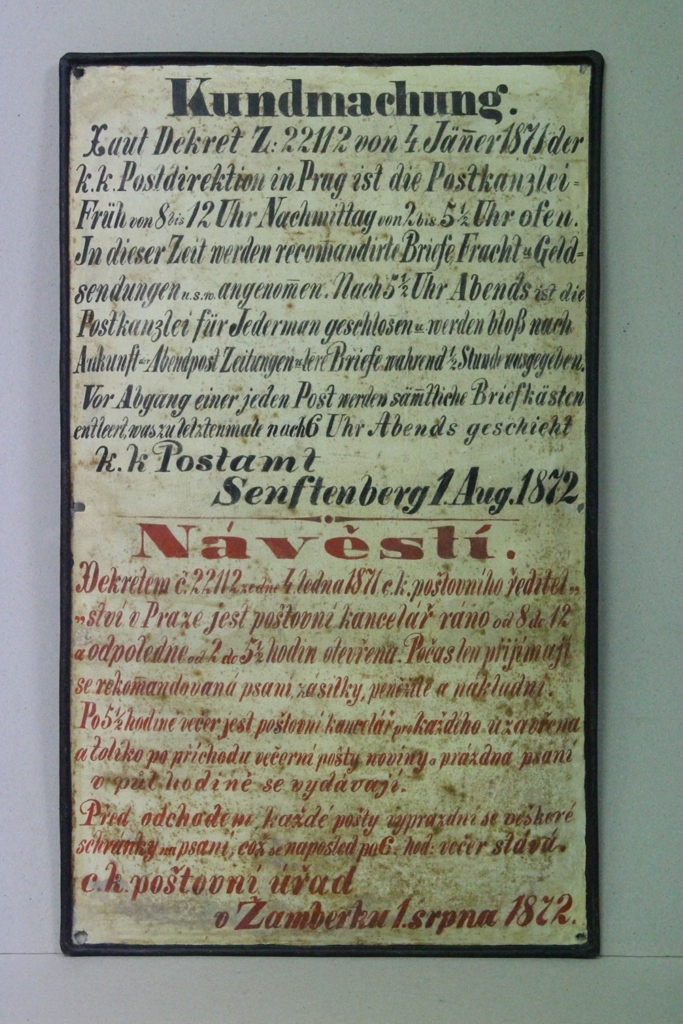 Kundmachung.
Laut Dekret Z: 22112 von 4. Jäner 1871 der
k.k. Postdirektion in Prag ist die Postkanzlei-
Früh von 8 bis 12 Uhr Nachmittag von 2 bis 5½ Uhr ofen.
In dieser Zeit werden recomandirte Briefe, Fracht u Geld-
sendungen u.s.w. angenomen. Nach 5½ Uhr Abends ist die
Postkanzlei für Jederman geschlosen u. werden bloß nach
Ankunft der Abendpost Zeitungen u. lere Briefe wahrend ½ Stunde ausgegeben.
Vor Abgang einer jeden Post werden sämtliche Briefkästen
entleert, was zu letztenmale nach 6 Uhr Abends geschieht
k.k Postamt
Senftenberg 1. Aug. 1872.
Návěstí.
Dekretem č. 22112 ze dne 4. ledna 1871 c.k. poštovního ředitel„
„ství v Praze jest poštovní kancelář ráno od 8 do 12
a odpoledne od 2 do 5½ hodin otevřena. Počas ten přijímají
se rekomandovaná psaní, zásilky, peněžité a nákladní.
Po 5½ hodině večer jest poštovní kancelář pro každého uzavřena
a toliko po příchodu večerní pošty noviny a prázdná psaní
v půl hodině se vydávají.
Před odchodem každé pošty vyprazdní se veškeré
schránky na psaní, což se naposled po 6. hod: večer stává.
c.k. poštovní úřad
v Žamberku 1. srpna 1872.